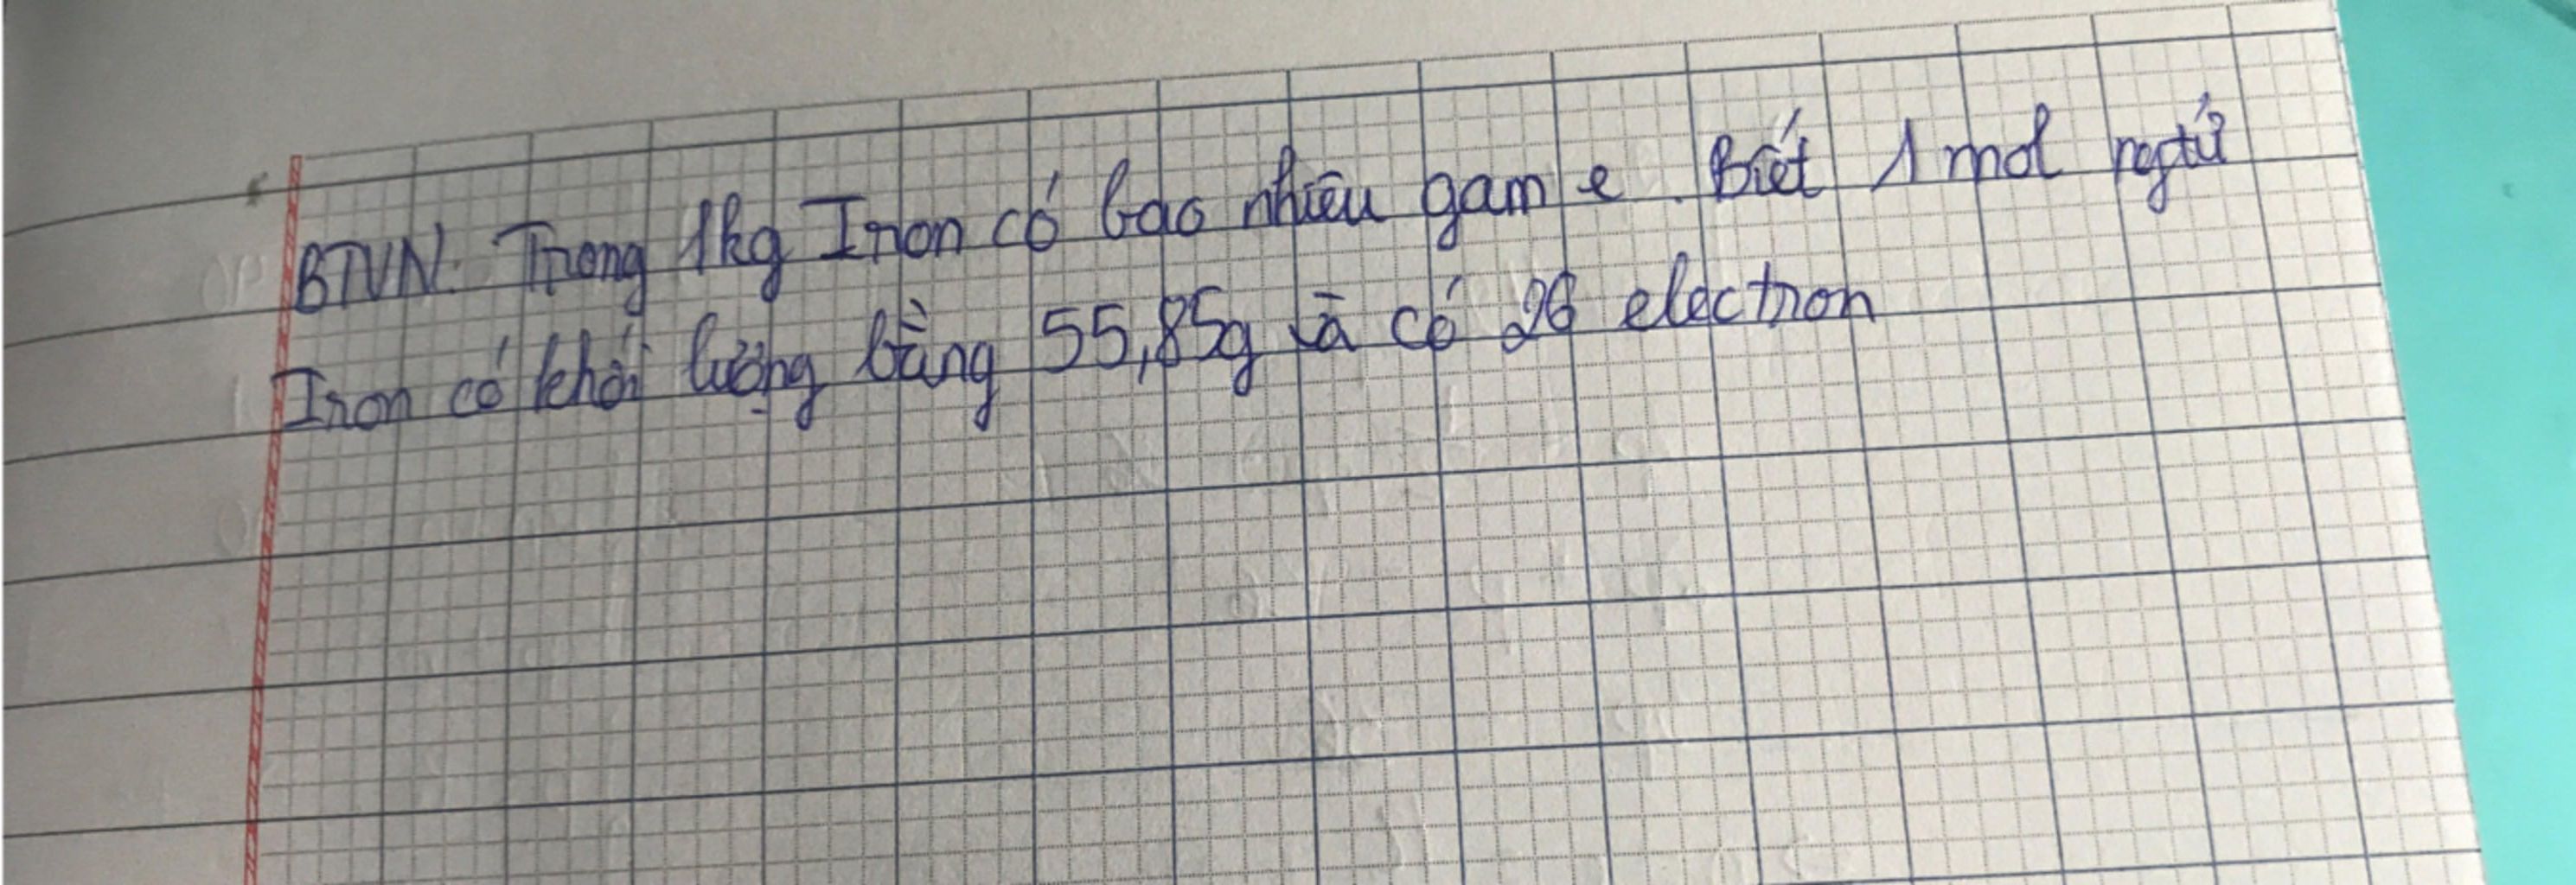 BTVN: Trong 1kg Iron có bao nhiêu gam e. Biết 1 mol ngtử
Iron có khối lượng bằng 55,85g và có 26 electron